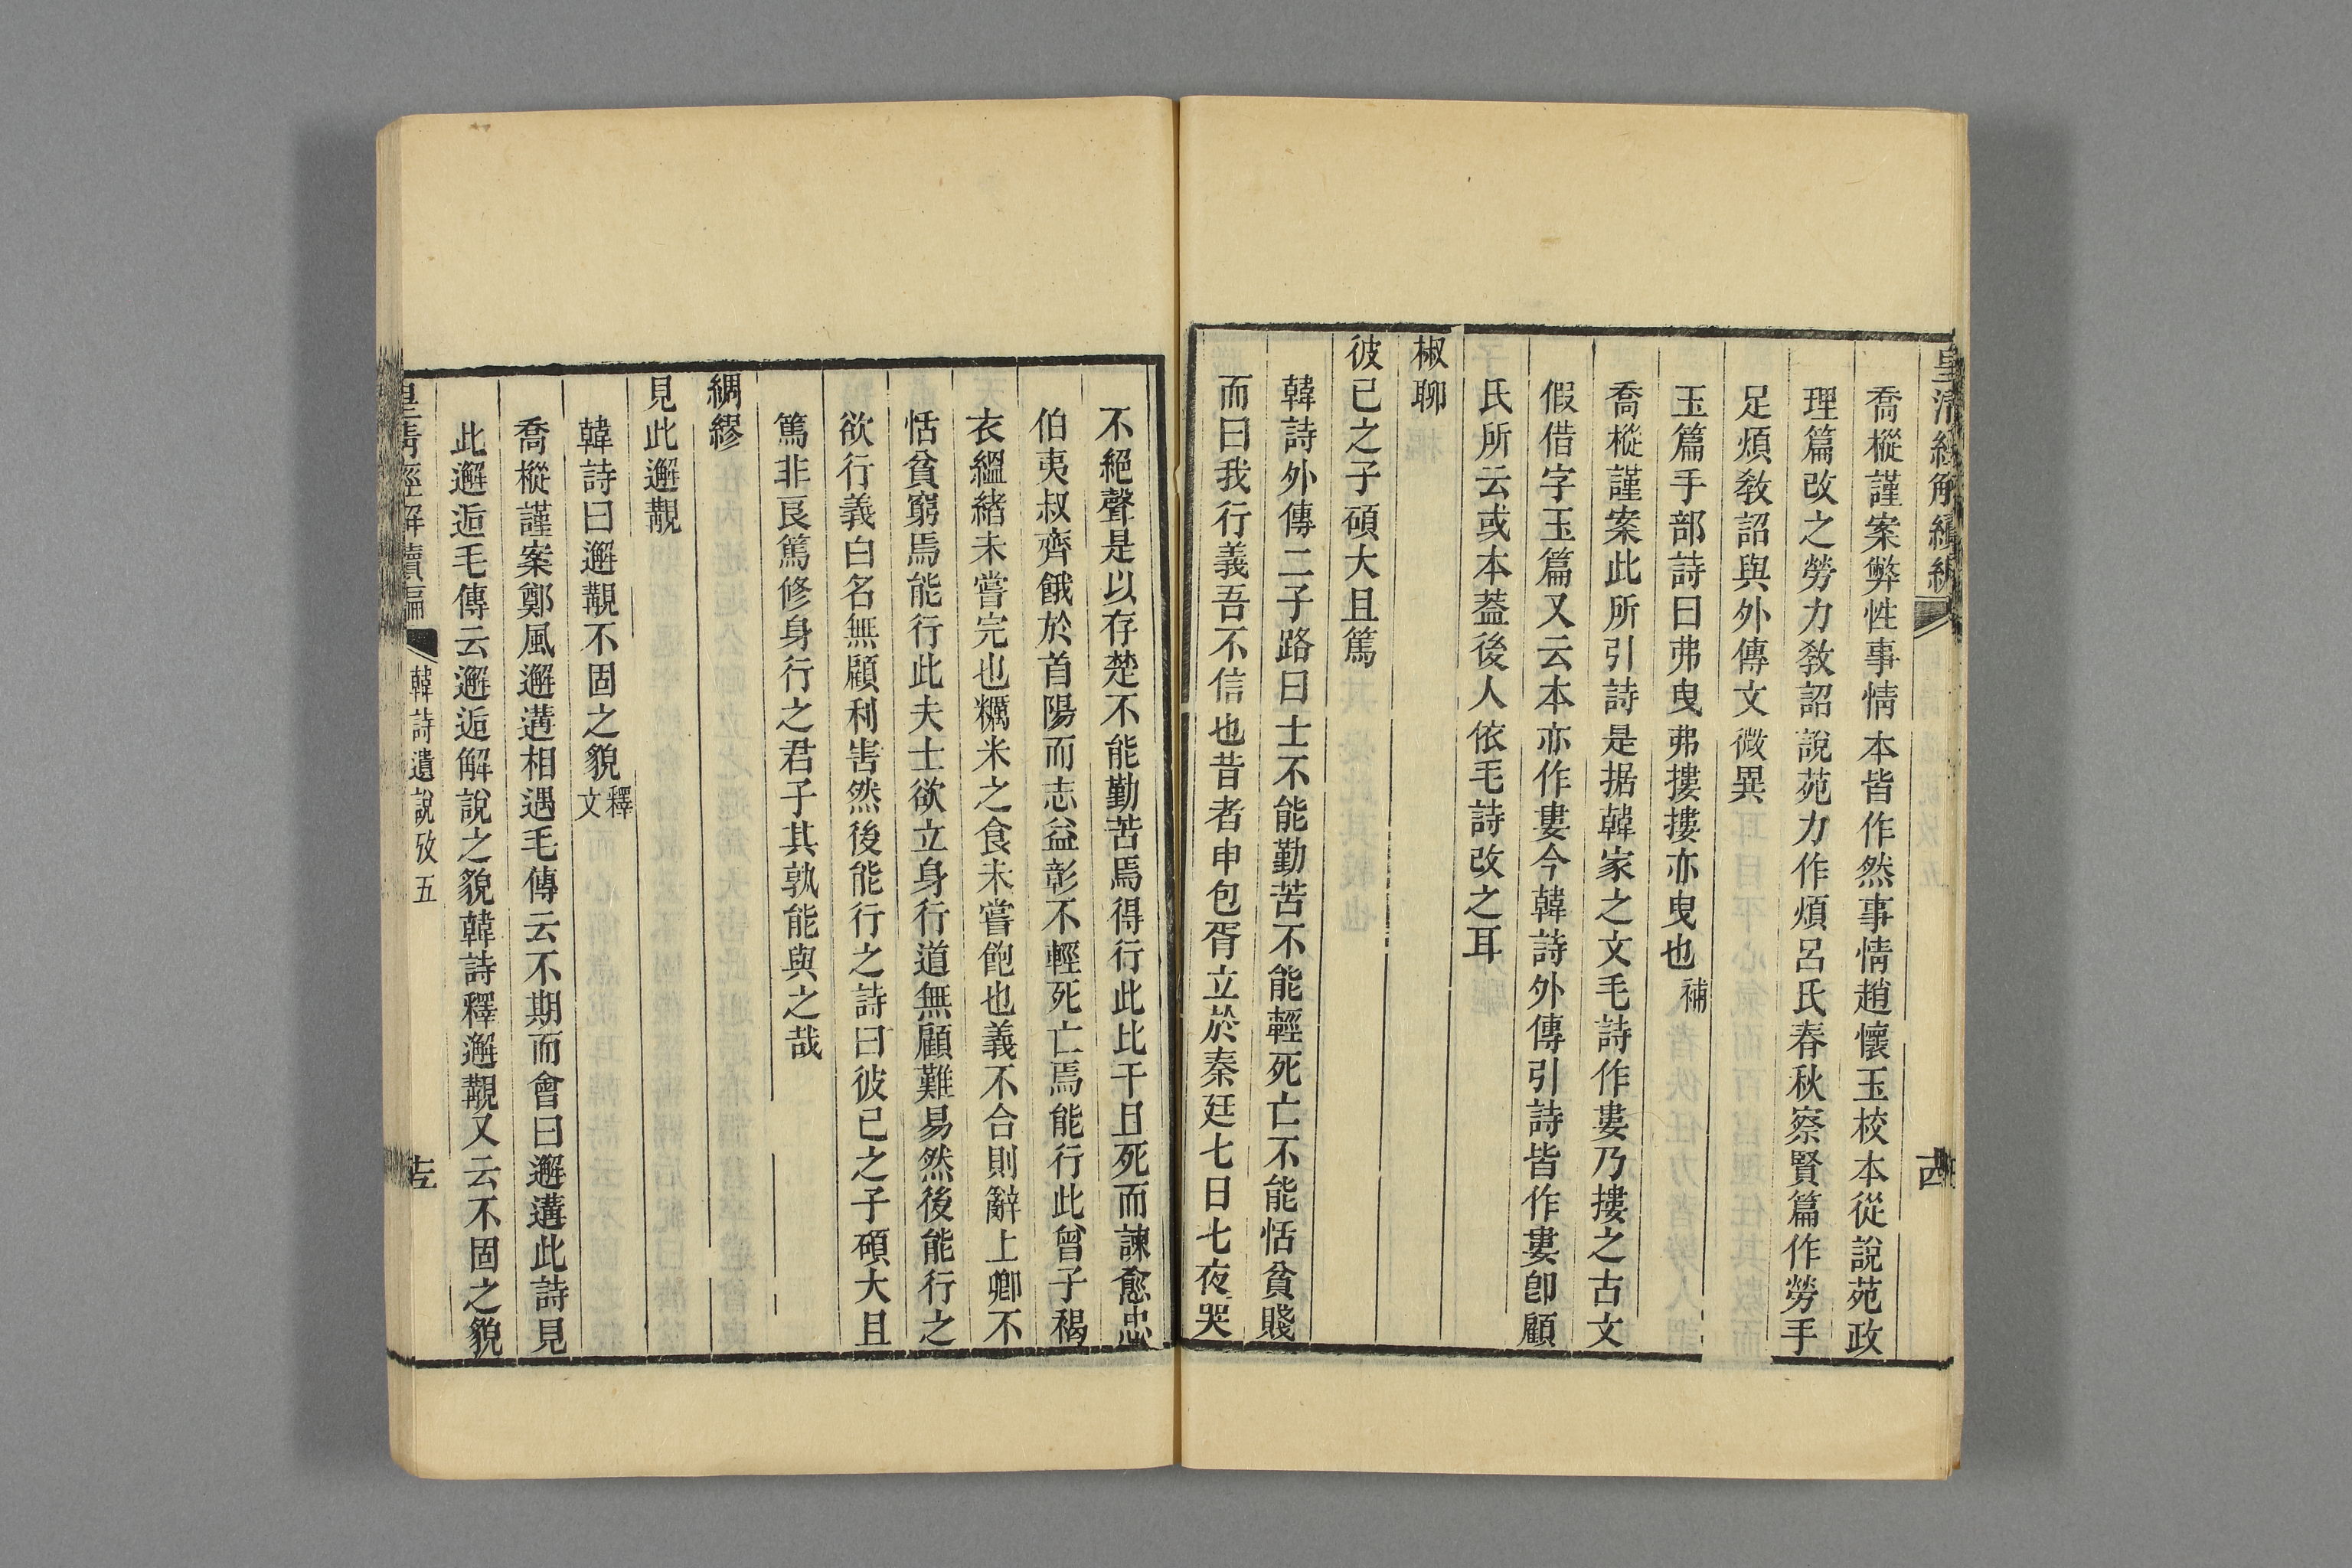 皇清經解續編
喬樅謹案弊性事情本皆作然事情趙懷玉校本從說苑政
理篇改之勞力敎詔說苑力作煩呂氏春秋察賢篇作勞手
足煩敎詔與外傳文微異
玉篇手部詩曰弗曳弗摟摟亦曳也補
喬樅謹案此所引詩是据韓家之文毛詩作婁乃摟之古文
假借字玉篇又云本亦作婁今韓詩外傳引詩皆作婁卽顧
氏所云或本葢後人依毛詩改之耳
椒聊
彼已之子碩大且篤
韓詩外傳二子路曰士不能勤苦不能輕死亡不能恬貧賤
而曰我行義吾不信也昔者申包胥立於秦廷七日七夜哭
不絕聲是以存楚不能勤苦焉得行此比干且死而諫愈忠
伯夷叔齊餓於首陽而志益彰不輕死亡焉能行此曾子褐
衣縕緖未嘗完也糲米之食未嘗飽也義不合則辭上卿不
恬貧窮焉能行此夫士欲立身行道無顧難易然後能行之
欲行義白名無顧利害然後能行之詩曰彼已之子碩大且
篤非良篤修身行之君子其孰能與之哉
綢繆
見此邂覯
韓詩曰邂覯不固之貌釋文
喬樅謹案鄭風邂遘相遇毛傳云不期而會曰邂遘此詩見
此邂逅毛傳云邂逅解說之貌韓詩釋邂覯又云不固之貌
皇清經解續編
韓詩遺說攷五